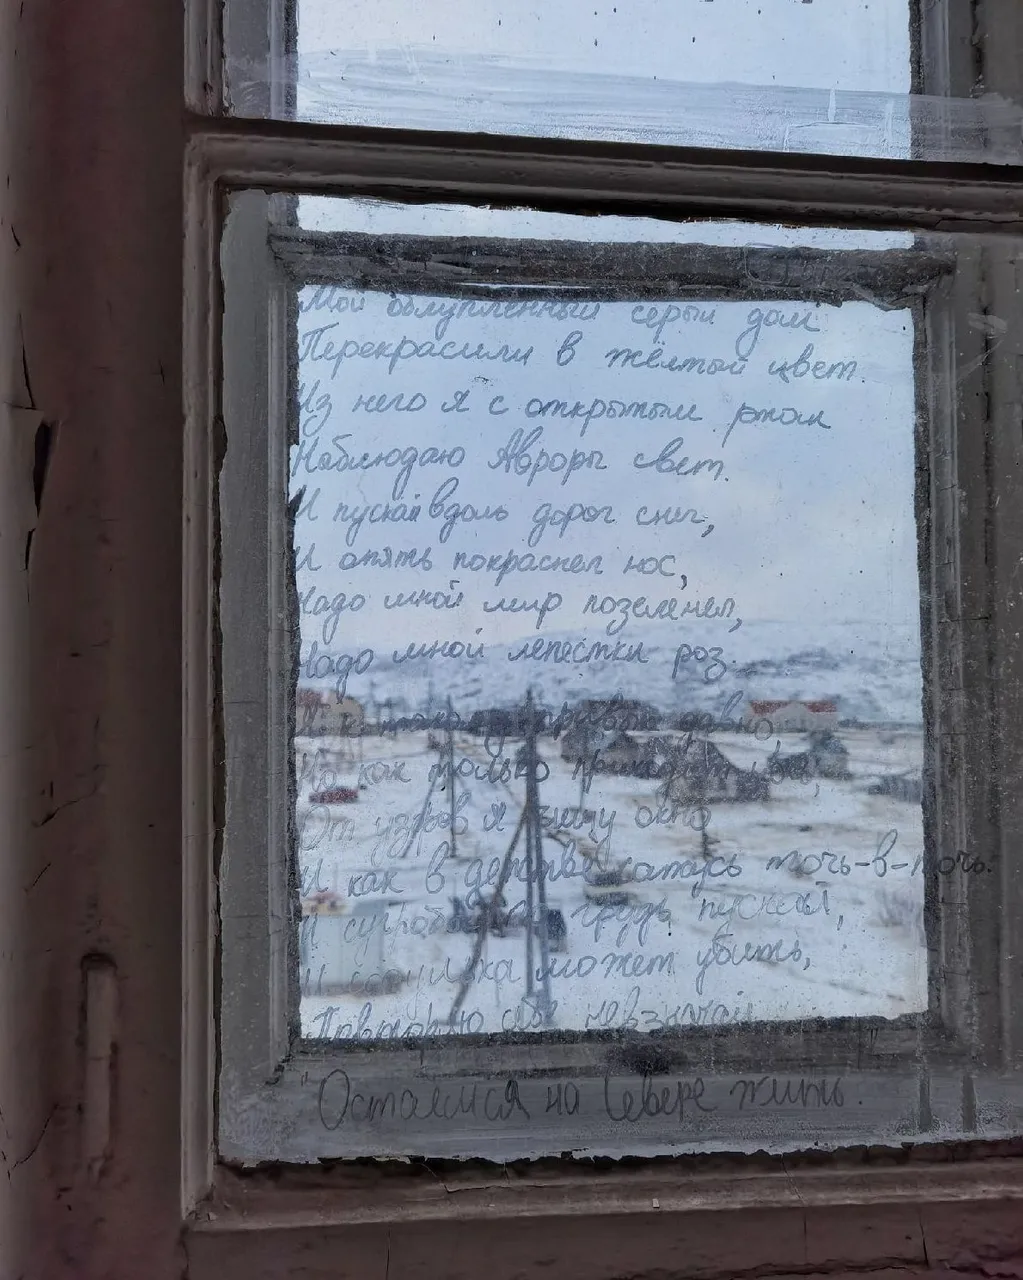 Мой облупленный серый дом
Перекрасили в жёлтый цвет.
Из него я с открытым ртом
Наблюдаю Авроры свет.
И пускай вдоль дорог снег,
И опять покраснел нос,
Надо мной мир позеленел,
Надо мной лепестки роз.
И к такому привык давно,
Но как только приходит ночь,
От узров я вижу окно
И как в детстве катаюсь точь-в-точь.
И сугробы по грудь пускай,
И сосулька может убить,
Повторяю себе невзначай
"Остаемся на Севере жить."